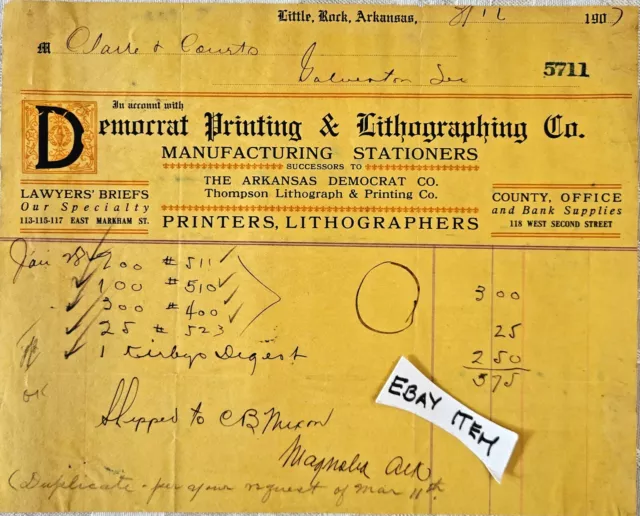 Little, Rock, Arkansas, 3/12 1907
M Clarke & Courts
Galveston Tex
5711
In account with
Democrat Printing & Lithographing Co.
MANUFACTURING STATIONERS
SUCCESSORS TO
THE ARKANSAS DEMOCRAT CO.
Thompson Lithograph & Printing Co.
PRINTERS, LITHOGRAPHERS
LAWYERS' BRIEFS
Our Specialty
113-115-117 EAST MARKHAM ST.
COUNTY, OFFICE
and Bank Supplies
118 WEST SECOND STREET
Jan 28 200 # 511
100 # 510 3 00
300 # 400
25 # 523 25
1 Kirbys Digest 2 50
5 75
OK
Shipped to C B Nixon
Magnolia Ark
(Duplicate - per your request of Mar 11th
EBAY ITEM